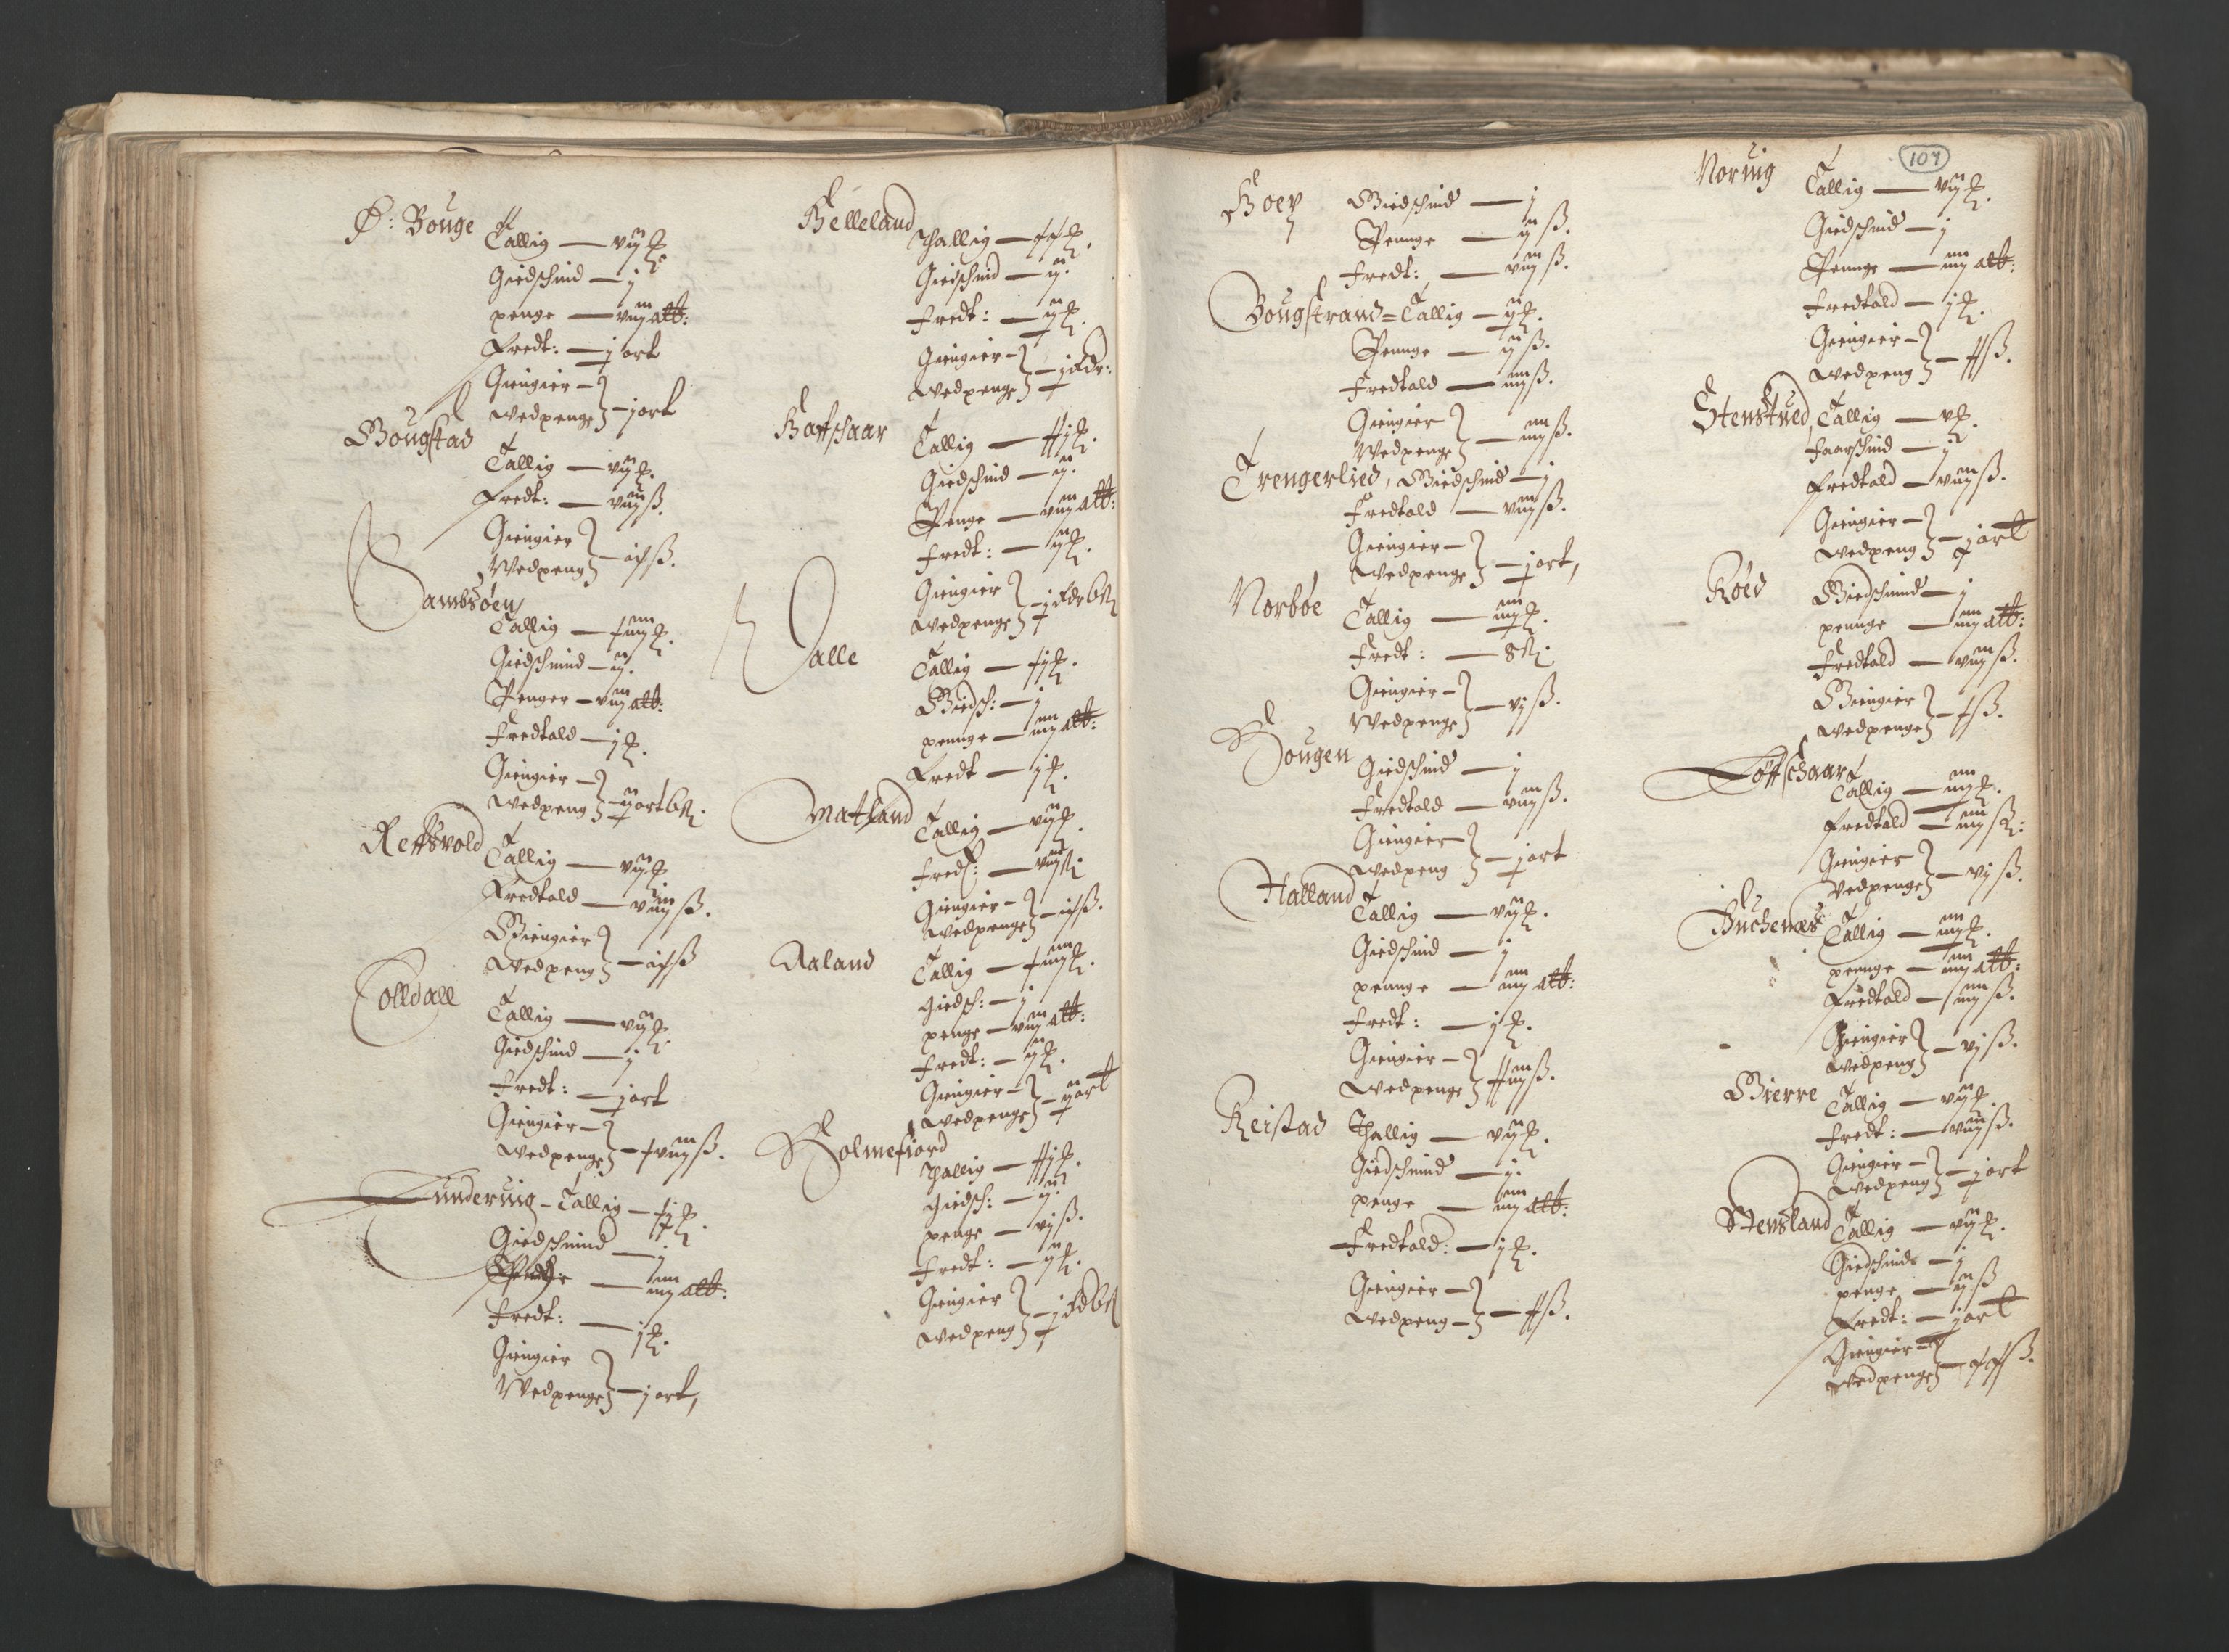 Ø: Bouge Tallig — vij ℔
Giedschind — j
penge — viij alb:
Fredt: — j ort
Giengier –
Wedpenge } – j ort
Bougstad
Tallig — vij ℔.
Fredt: — viij ß.
Giengier
Wedpeng } – ix ß.
Sambsøen
Tallig — xiiij ℔.
Giedschind — ij.
Penger – viij alb:
Fredtold — j ℔.
Giengier –
Wedpeng } – ij ort 6 ß.
Reffsvold
Tallig — vij ℔
Fredtold — viij ß.
Giengier
Wedpeng } – ix ß
Colldall
Tallig — vij ℔.
Giedschind — j
Fredt: — j ort
Giengier –
Wedpenge } – xviij ß.
Tunderuig – Tallig — xj ℔.
Giedschind — j
Penge — iiij alb:
Fredt: — j ℔.
Giengier
Wedpenge } – j ort,
Helleland
Thallig — xx ℔.
Giedschind — ij.
Fredt: — ij ℔.
Giengier –
Wedpenge } – j Rdr:
Haffschaar
Tallig — xxj ℔.
Giedschind — ij.
Penge — viij alb:
Fredt: — ij ℔.
Giengier
Wedpenge } – j Rdr 6 ß
Valle
Tallig — xj ℔.
Giedsch: — j
pennge — iiij alb:
Fredt — j ℔.
Matland
Tallig — vij ℔.
Fredt: — viij ß
Giengier –
Wedpenge } – ix ß.
Aaland
Tallig — xiiij ℔.
Giedsch: — j
penge — viij alb:
Fredt: — ij ℔.
Giengier –
Wedpenge } – ij ort
Holmefiord
Thallig — xxj ℔.
Giedsch: — ij.
penge — vj ß.
Fredt: — ij ℔.
Giengier
Wedpeng } – j Rd 6 ß
107
Hoey Giedschind — j
Pennge — ij ß.
Fredt: — viij ß.
Bougstrand = Tallig — ij ℔.
Pennge — ij ß.
Fredtold — iiij ß.
Giengier
Wedpenge } — iiij ß.
Trengerlied, Giedschind — j
Fredtold — viij ß.
Giengier –
Wedpenge } – j ort,
Norbøe Tallig — iiij ℔.
Fredt: — 8 ß.
Giengier –
Wedpenge } – vj ß.
Hougen Giedschind — j
Fredtold — viij ß.
Giengier
Wedpeng } – j ort
Halland Tallig — vij ℔.
Giedschind — j
pennge — iiij alb:
Fredt: — j ℔.
Giengier –
Wedpenge } xxiij ß.
Reistad Thallig — vij ℔.
Giedschind — j.
penge — iiij alb:
Fredtold: — j ℔.
Giengier –
Wedpeng – } – xx ß.
Noruig Tallig — vij ℔.
Giedschind — j
Pennge — iiij alb:
Fredtold — j ℔.
Giengier –
Wedpeng } – xx ß.
Stenstued, Tallig — v ℔.
Faarschind — j
Fredtold — viij ß.
Giengier –
Wedpeng } – j ort
Røed Giedschind — j
pennge — iiij alb:
Fredtold — viij ß.
Giengier
Wedpenge } – x ß.
Tøffschaar
Tallig — iiij ℔.
Fredtold — iiij ß:
Giengier
Wedpenge } – vj ß.
Buchenæs Tallig — iiij ℔.
pennge — iiij alb:
Fredtold — iiij ß.
Giengier
Wedpeng } – vj ß.
Gierre Tallig — vij ℔.
Fredt: — viij ß.
Giengier –
Wedpeng } – j ort
Stensland Tallig — vij ℔.
Giedschind — j
penge — ij ß
Fredt: — j ort
Giengier –
Wedpenge } – xx ß.